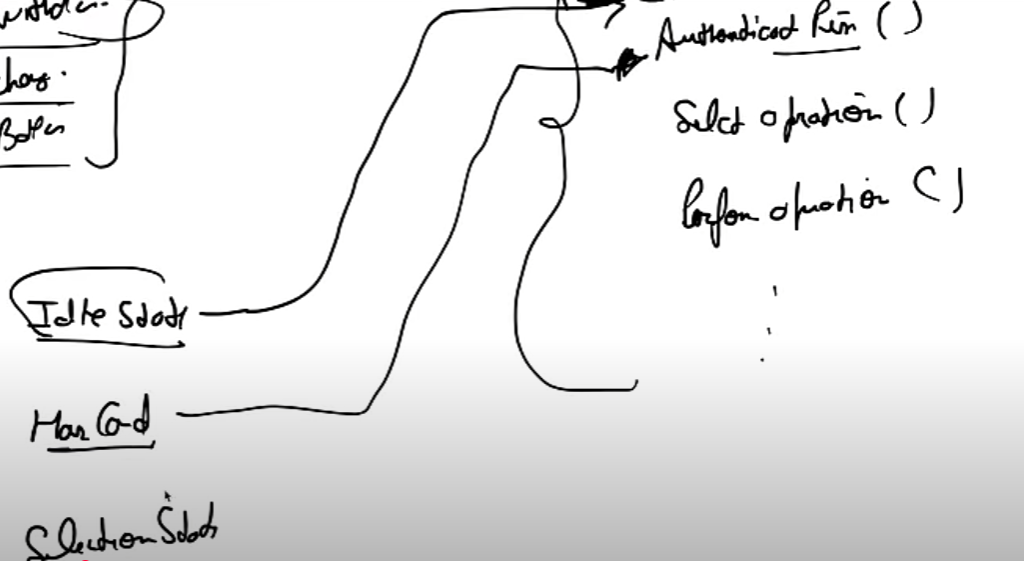 Authenticat Pin ( )
Select operation ( )
Perform operation ( )
Idle State
Has Card
Selection State